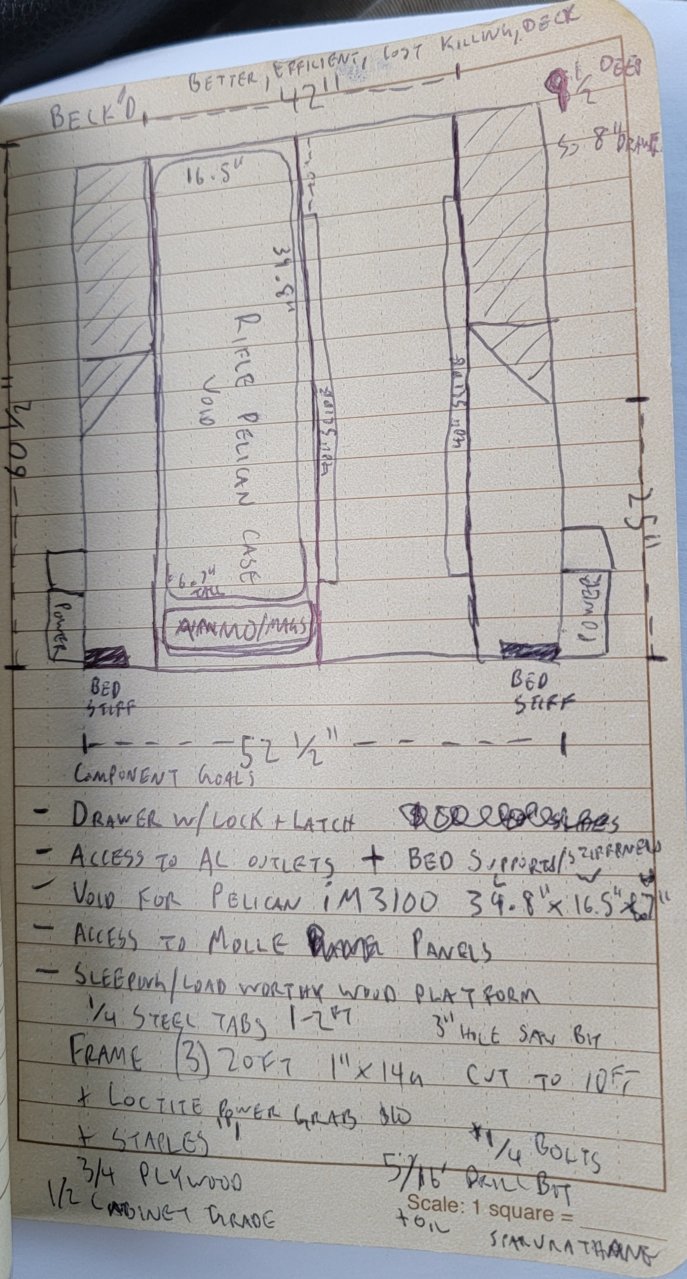 BECK'D, BETTER, EFFICIENT, COST KILLING, DECK
42"
9 1/2 DEEP
8" DRAWER
16.5"
39.8"
60 1/2"
RIFLE PELICAN CASE
VOID
40" SLIDE
40" SLIDE
25"
6.7"
TALL
AMMO/MAGS
POWER
POWER
BED
STIFF
BED
STIFF
52 1/2"
COMPONENT GOALS
- DRAWER W/ LOCK + LATCH
- ACCESS TO AC OUTLETS + BED SUPPORTS/STIFFENERS
- VOID FOR PELICAN iM3100 39.8" x 16.5" x 6.7"
- ACCESS TO MOLLE PANELS
- SLEEPING/LOAD WORTHY WOOD PLATFORM
1/4 STEEL TABS 1-2FT 3" HOLE SAW BIT
FRAME (3) 20FT 1" x 14G CUT TO 10FT
+ LOCTITE POWER GRAB
+ STAPLES *1/4 BOLTS
3/4 PLYWOOD 5/16" DRILL BIT
1/2 CABINET GRADE + OIL
Scale: 1 square =
SPARURATHANE